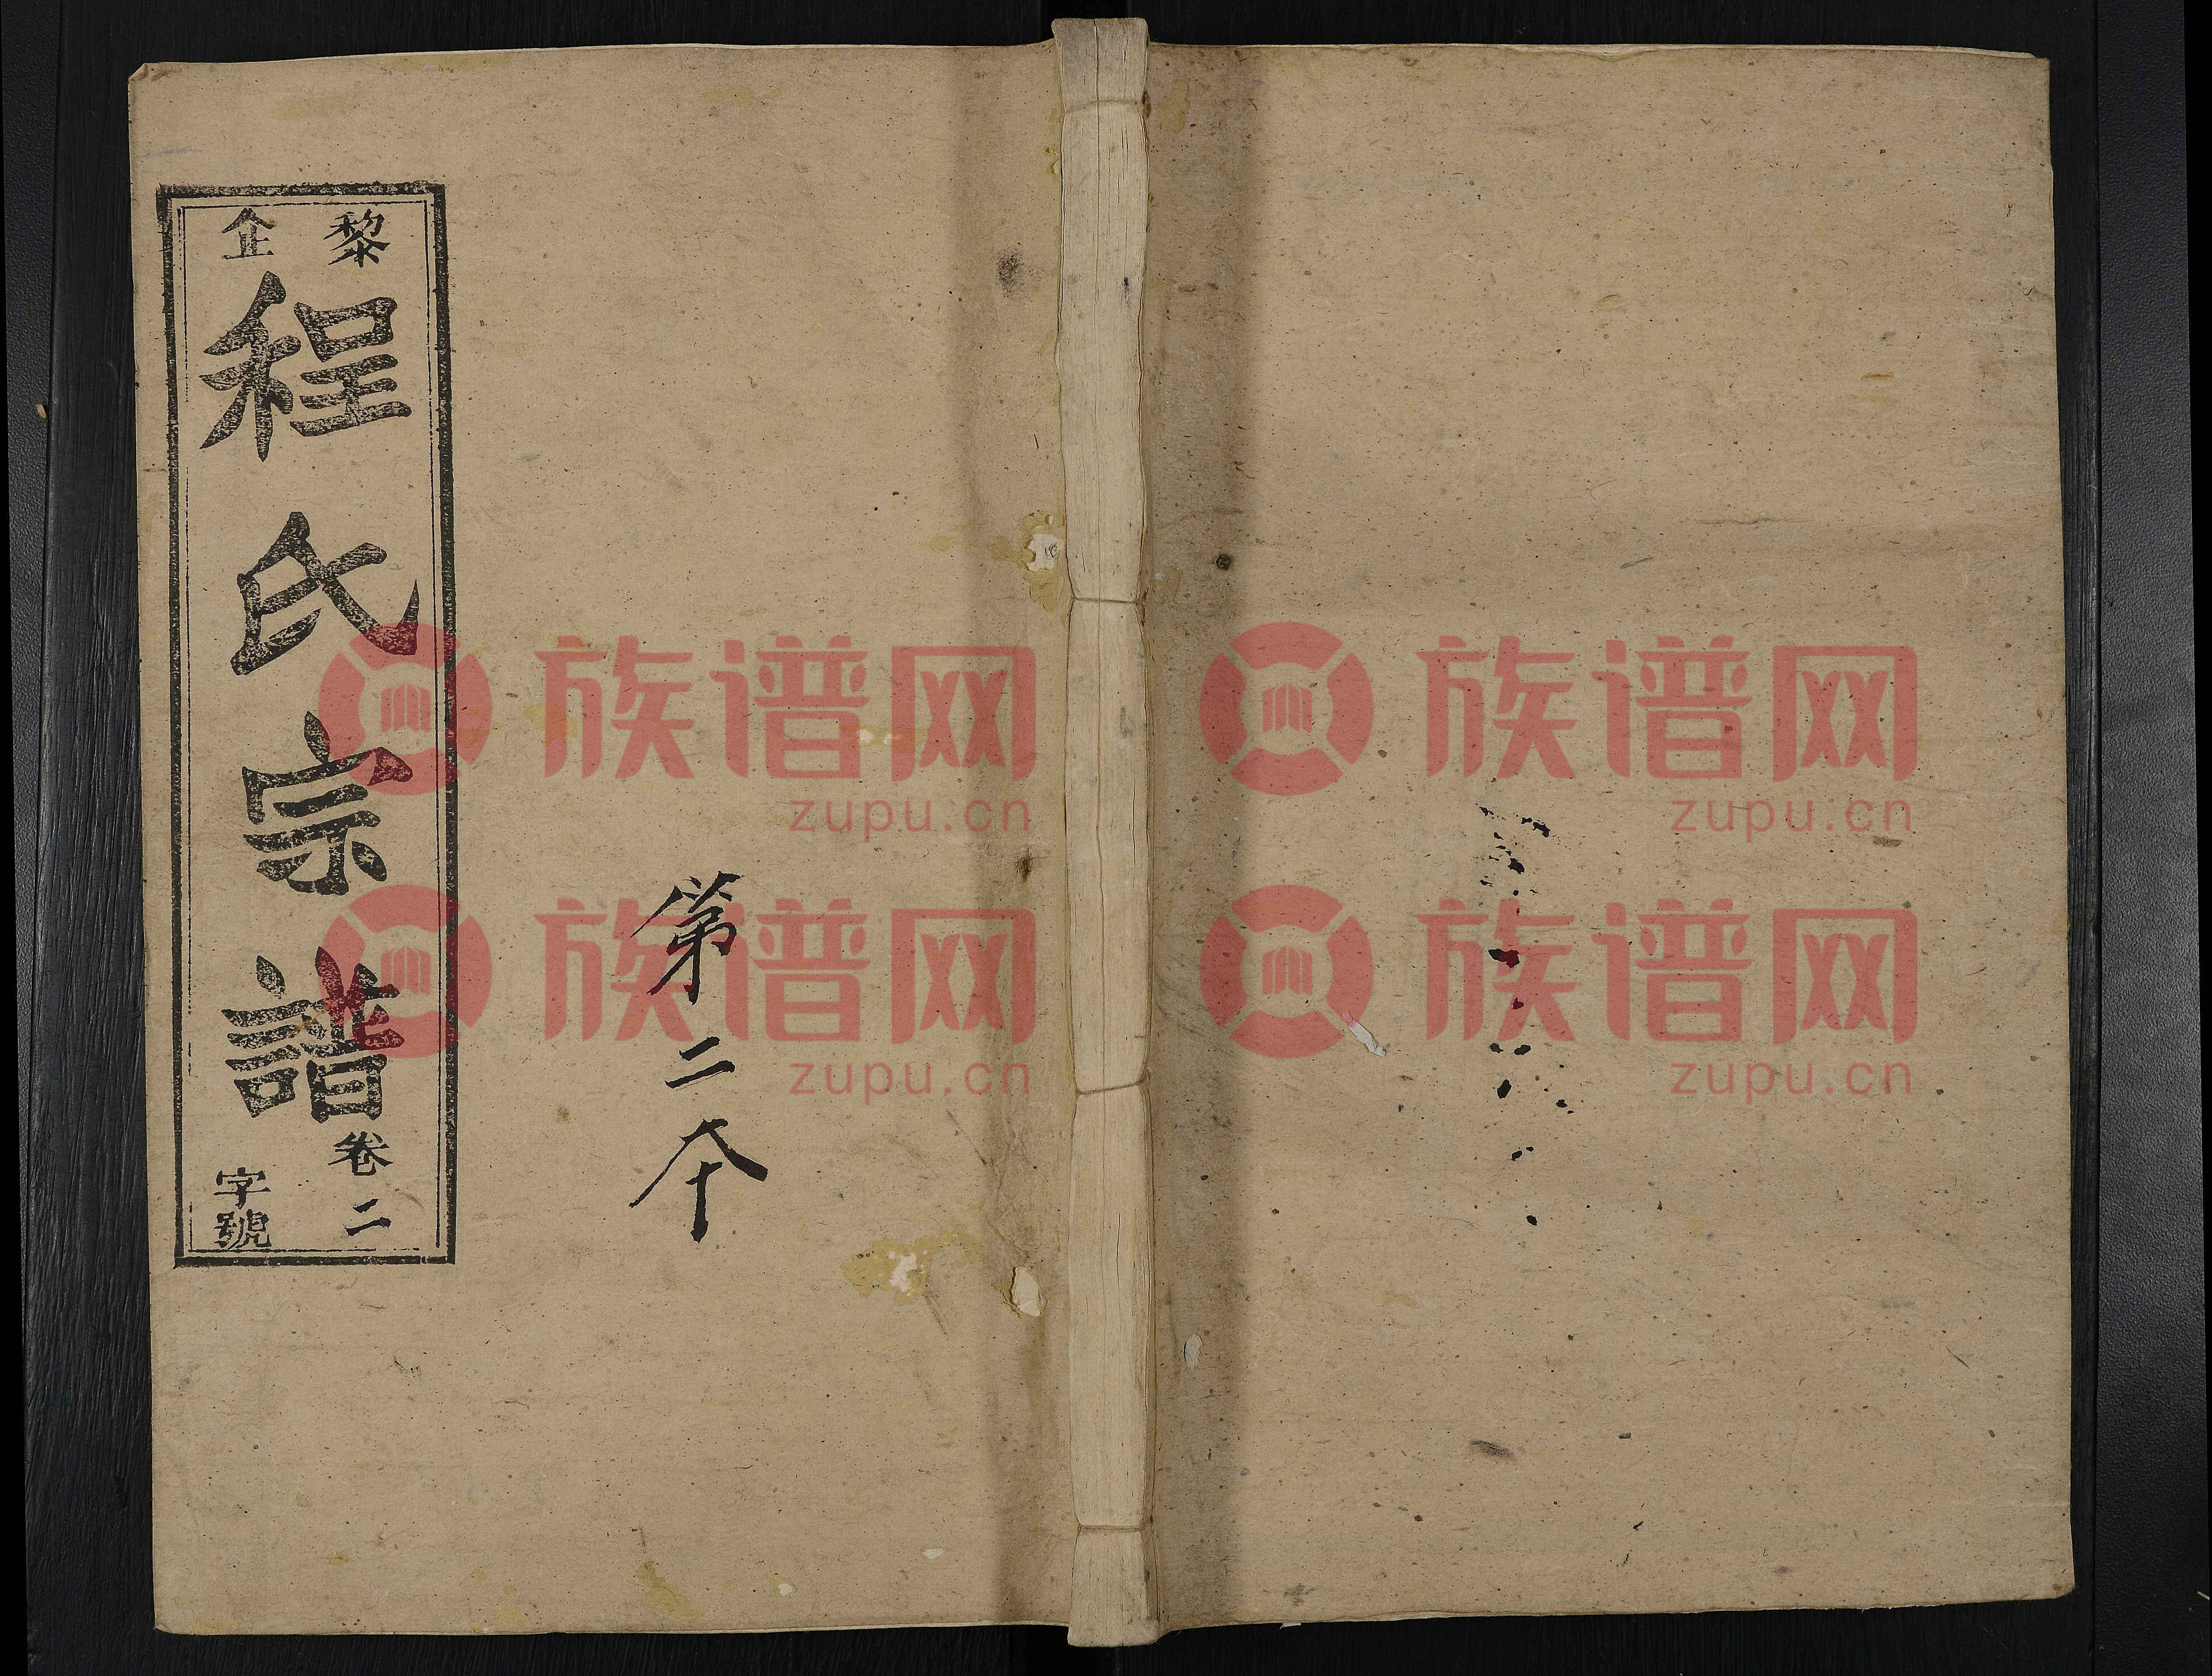 黎企
程氏宗譜
卷二
字號
第二本
族谱网
zupu.cn
族谱网
zupu.cn
族谱网
zupu.cn
族谱网
zupu.cn